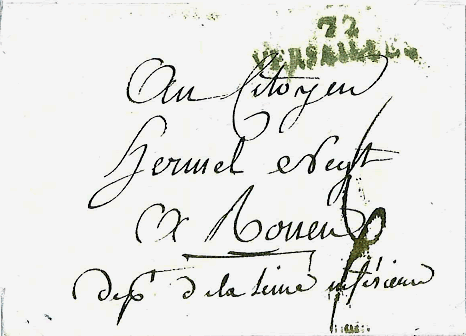 72
VERSAILLES
Au Citoyen
hermel
A Rouen
dep.t de la Seine inférieure